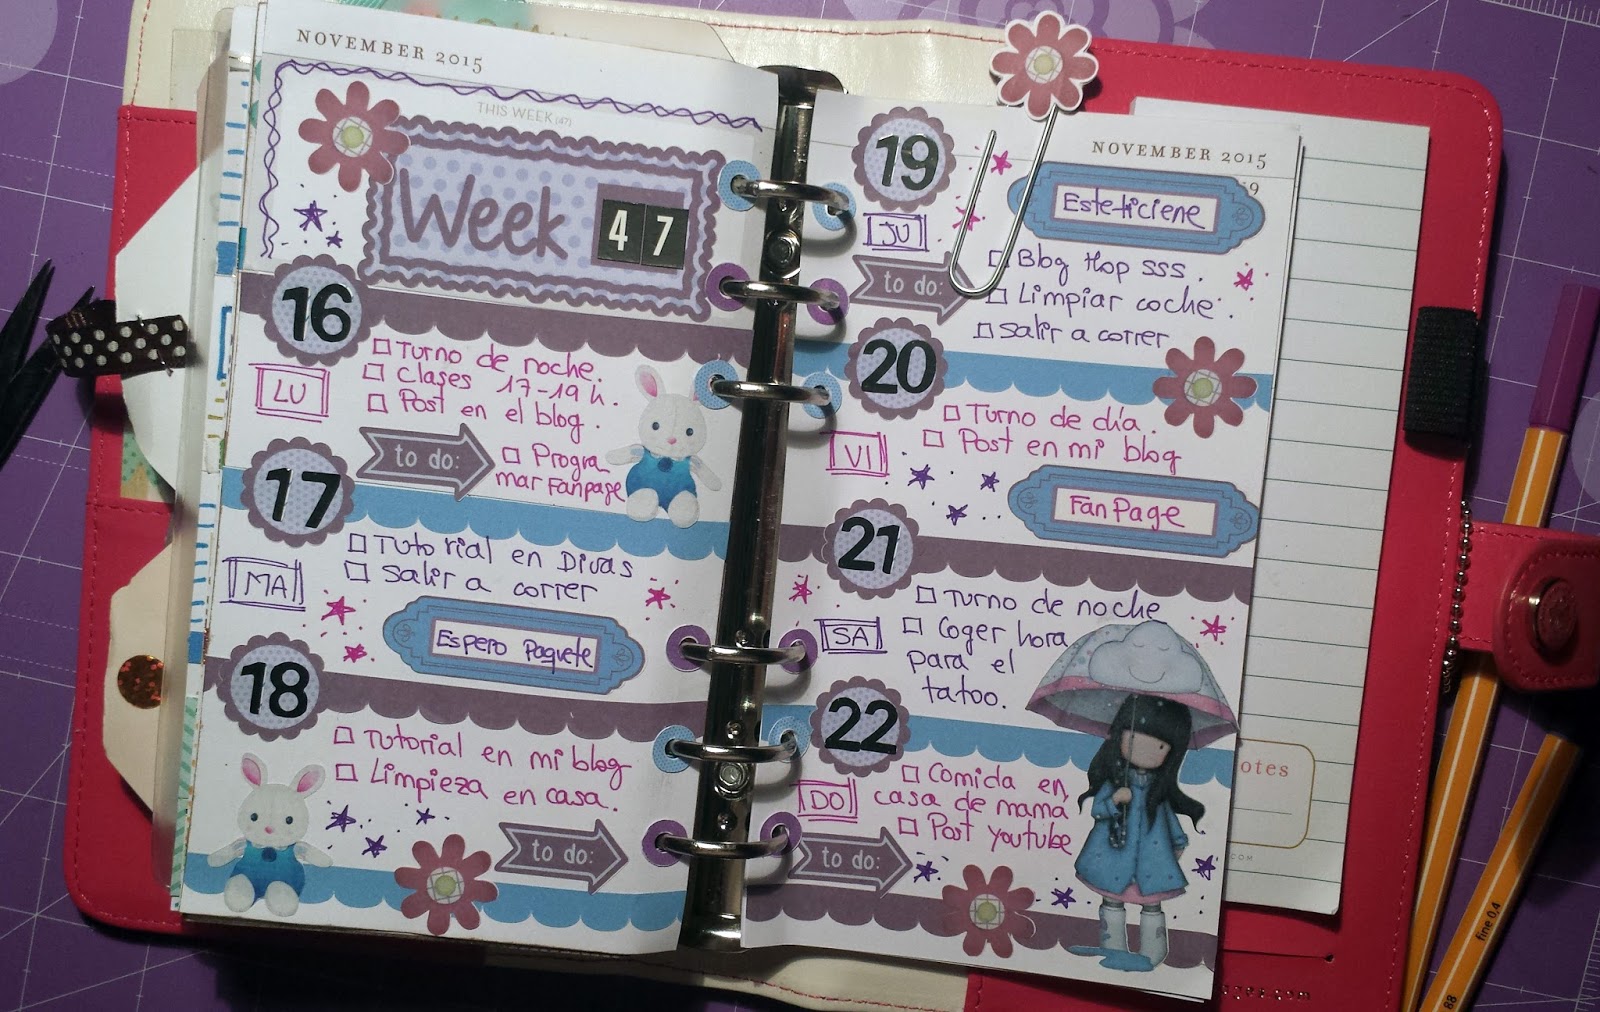 NOVEMBER 2015
THIS WEEK (47)
Week 47
16
LU
Turno de noche.
Clases 17-19 h.
Post en el blog.
to do:
Progra
mar Fanpage
17
MA
Tutorial en Divas
Salir a correr
Espero Paquete
18
Tutorial en mi blog
Limpieza en casa.
to do:
NOVEMBER 2015
19
JU
Esteticiene
to do:
Blog Hop SSS.
Limpiar coche.
Salir a correr
20
VI
Turno de día.
Post en mi blog
FanPage
21
SA
Turno de noche
Coger hora
para el
tatoo.
22
DO
Comida en
casa de mama
Post youtube
to do:
notes
.COM
fine 0,4
88